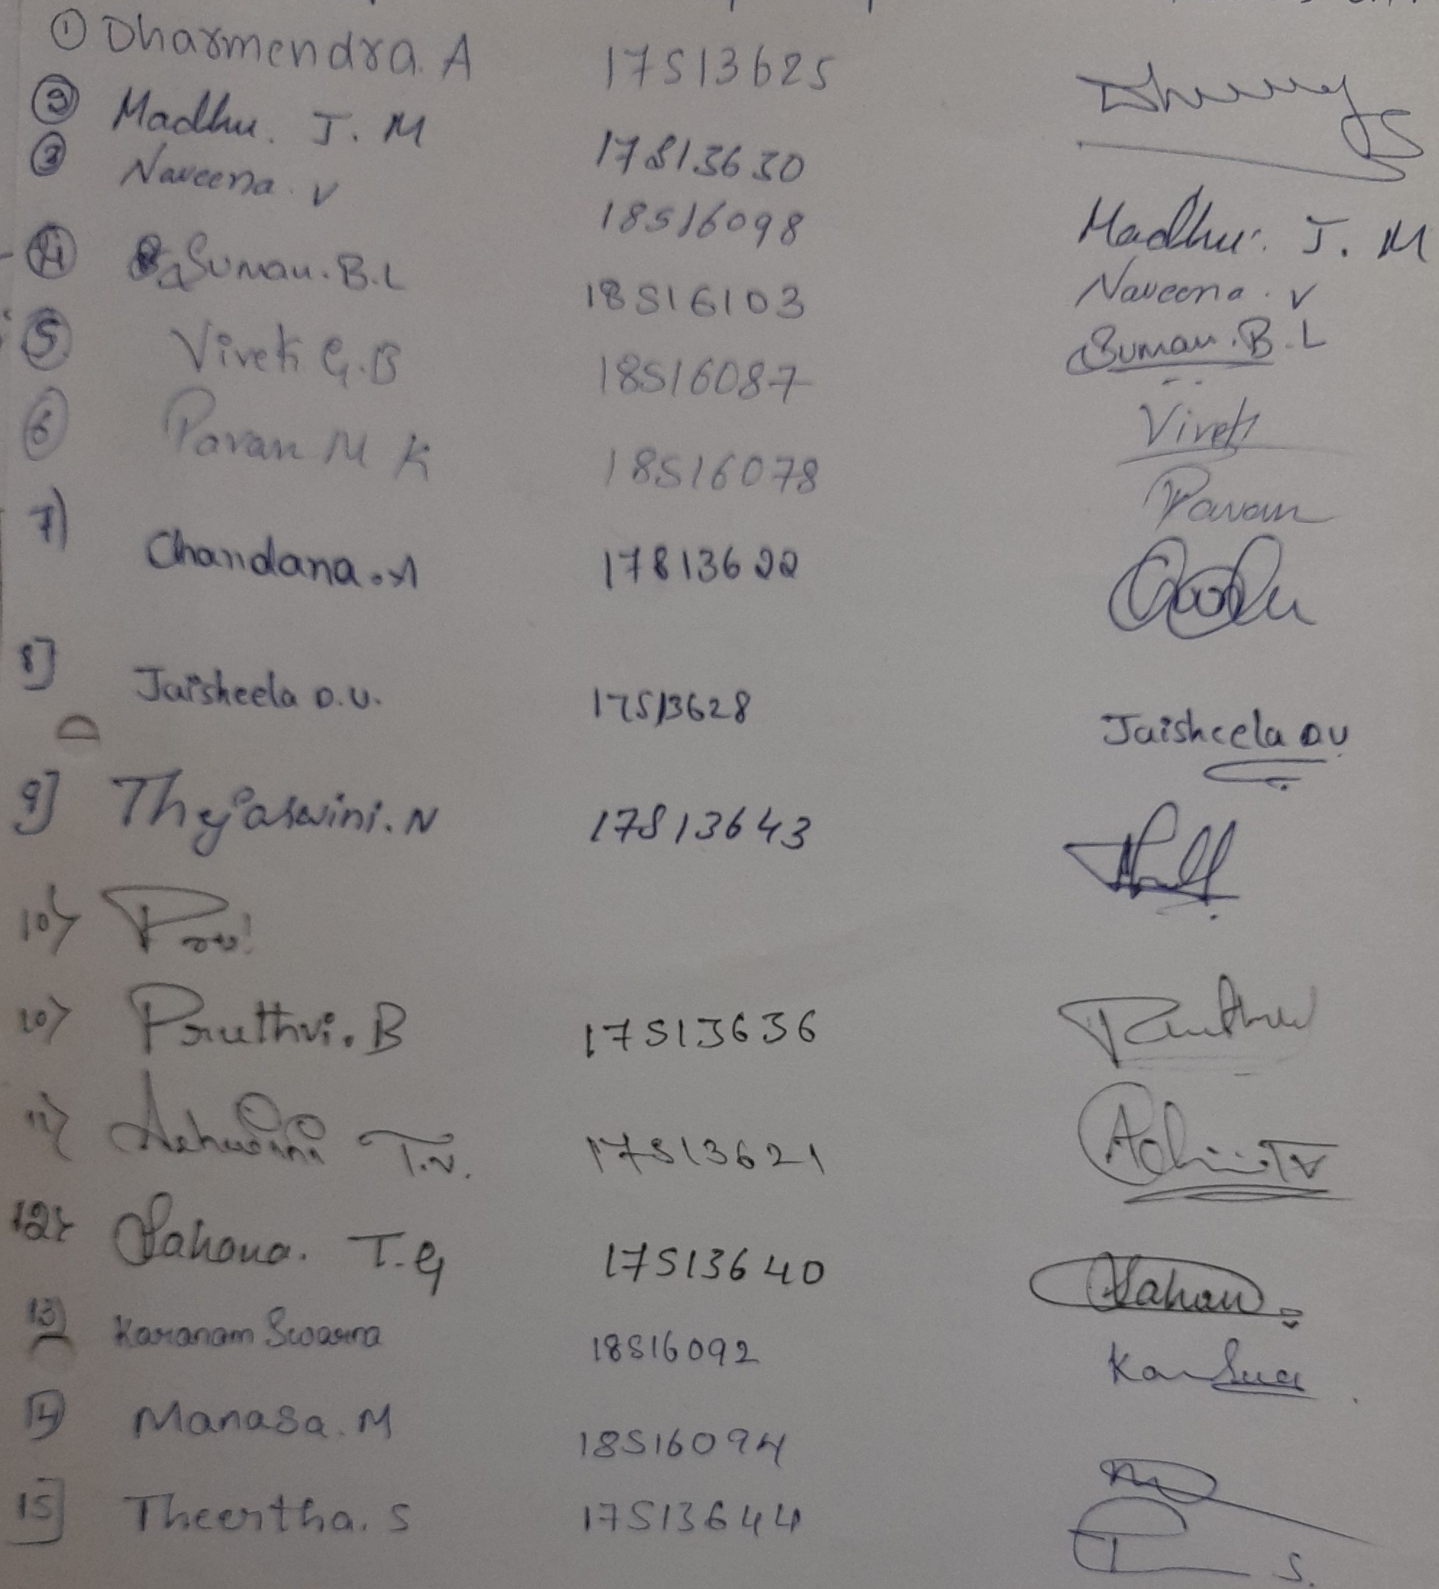 ① Dharmendra. A 17S13625
② Madhu. J. M 17S13630
③ Naveena. V 18S16098 Madhu. J. M
④ Suman. B.L 18S16103 Naveena. V
⑤ Vivek G.B 18S16087 Suman. B.L
⑥ Pavan M K 18S16078 Vivek
7) Chandana. A 17S13622 Pavan
8] Jaisheela D.U. 17S13628 Jaisheela DU
9] Thejaswini. N 17S13643
10)
10) Pruthvi. B 17S13636 Pruthvi
11) Ashwini T.V. 17S13621
12) Sahana. T.G 17S13640 Sahan
13) Karanam Swarna 18S16092
14) Manasa. M 18S16094
15] Theertha. S 17S13644 S.